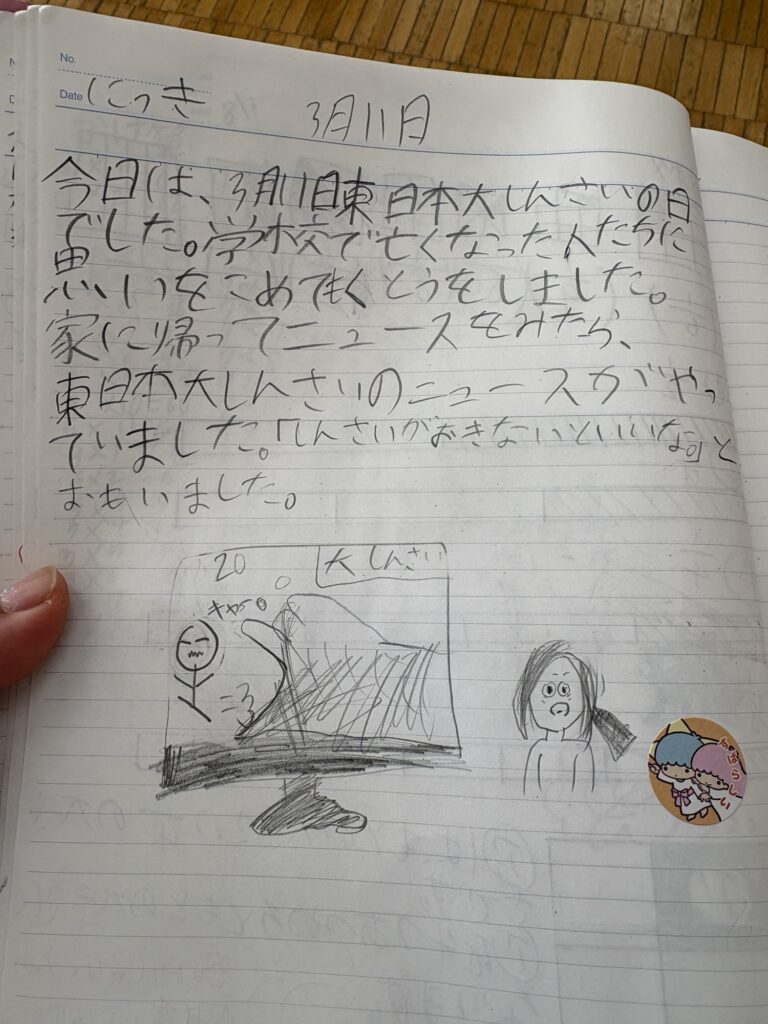 No.
Date にっき 3月11日
今日は、3月11日東日本大しんさいの日
でした。学校で亡くなった人たちに
思いをこめてもくとうをしました。
家に帰ってニュースをみたら、
東日本大しんさいのニュースがやっ
ていました。「しんさいがおきないといいな。」と
おもいました。
20 大しんさい
すばらしい